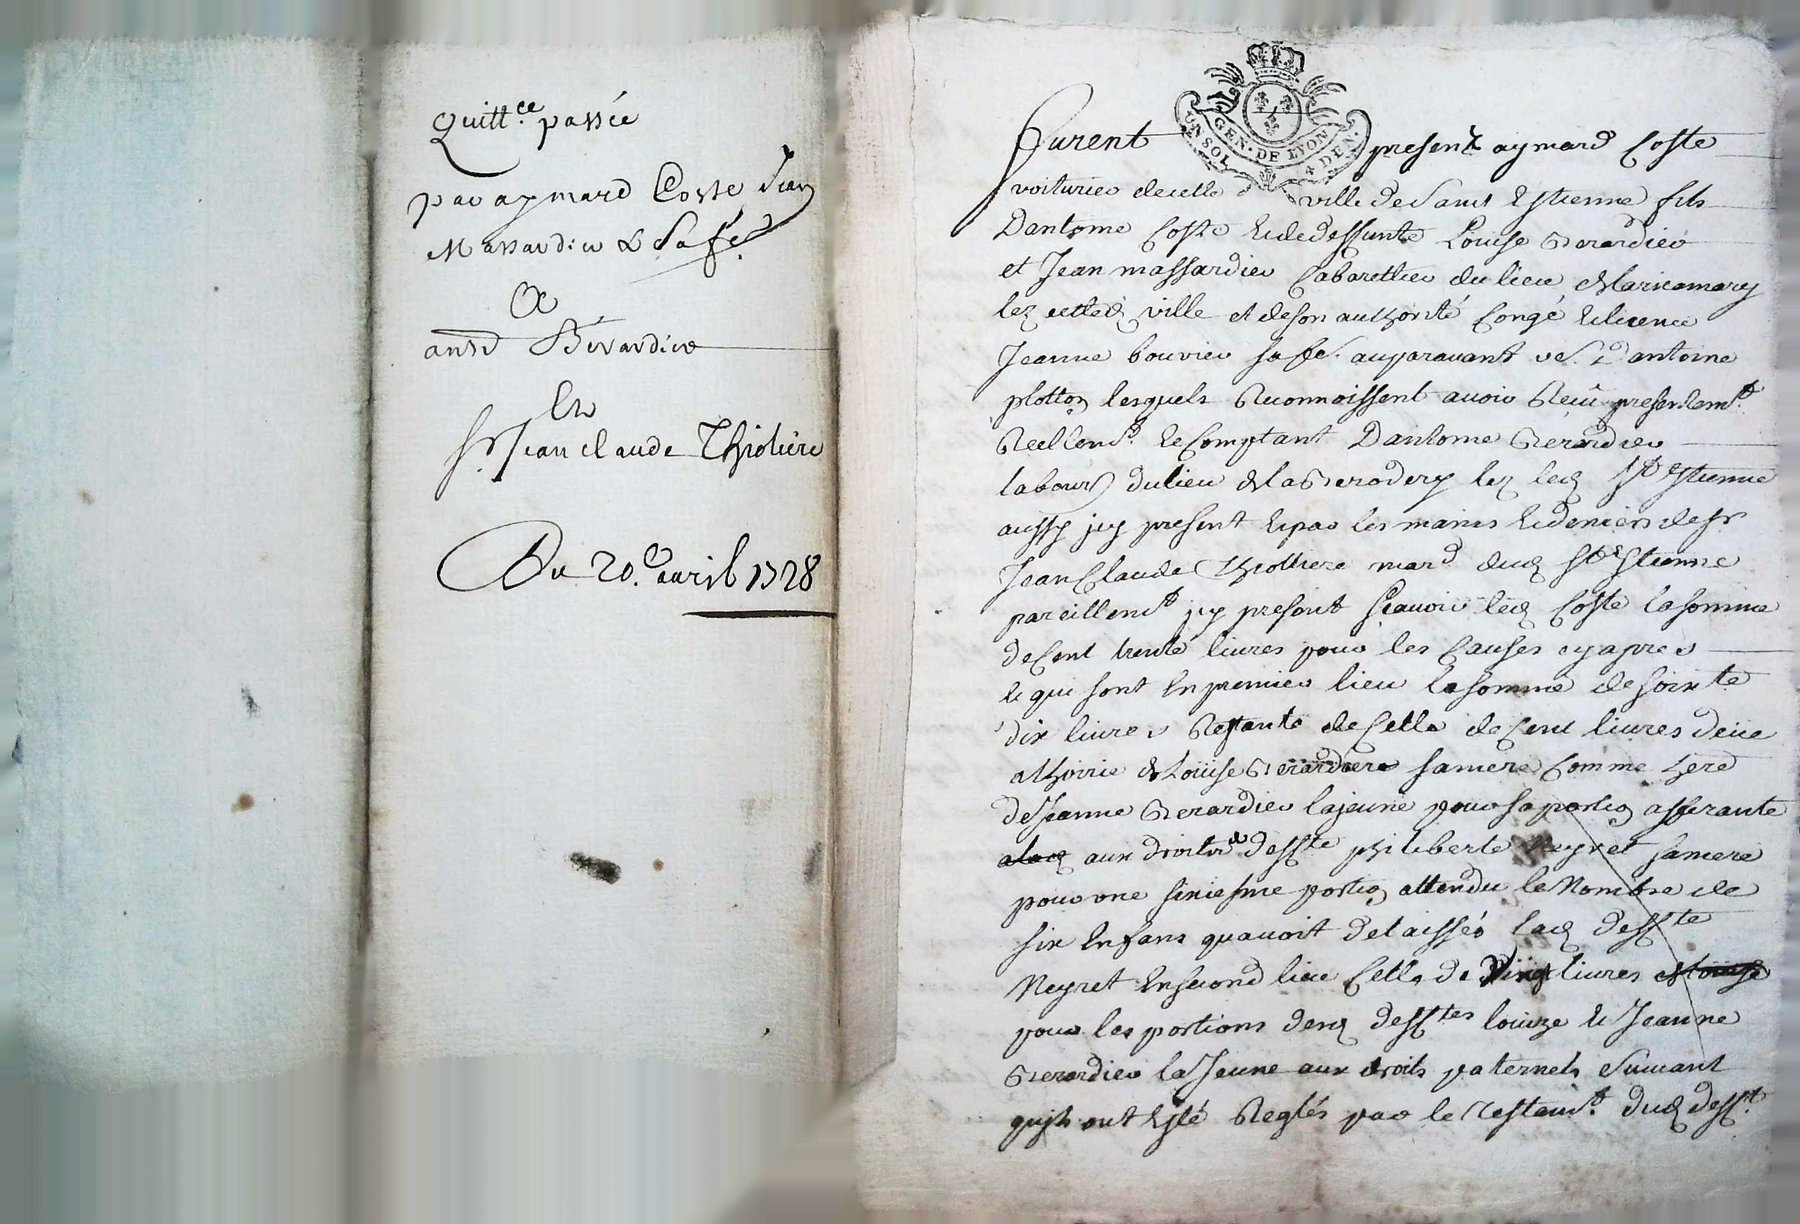 Quitt.ce passée
par aymard Coste Jean
Massardier & Sa fe.
A
ant.d Bérardier
Et
Sr. Jean claude Thiolière
Du 20.e avril 1728
UN SOL GEN. DE LYON DEN.
Furent present aymard Coste
voiturier de cette ville de Saint Estienne fils
D'antoine Coste & de deffunte Louise Berardier
et Jean massardier Cabarettier du lieu
lez cetted. ville et de son authorité Congé & licence
Jeanne bouvier sa fe. auparavant ve. D'antoine
plotton lesquels Reconnoissent avoir Reçu presentemt.
Reellemt. & Comptant D'antoine Berardier
labour. du lieu de la Berardery lez led. St. Estienne
aussy icy present & par les mains & deniers de Sr.
Jean Claude Thiolliere mard. dud. St. Estienne
pareillemt. icy present Scavoir led. Coste la somme
de Cent trente livres pour les Causes cy apres
& qui sont En premier lieu la somme de soixte.
dix livres Restante de Celle de Cent livres deüe
a Louise Berardiere sa mere Comme here.
de Jeanne Berardier la jeune pour sa portion afferante
a lad. aux droits de deffte. philiberte Neyret sa mere
pour une sixiesme portion attendu le Nombre de
six Enfans qu'avoit delaissés lad. deffte.
Neyret En second lieu Celle de vingt livres
pour les portions desd. defftes. louize & Jeanne
Berardier la Jeune aux droits paternels suivant
quils ont Esté Reglés par le Testamt. dud. defft.